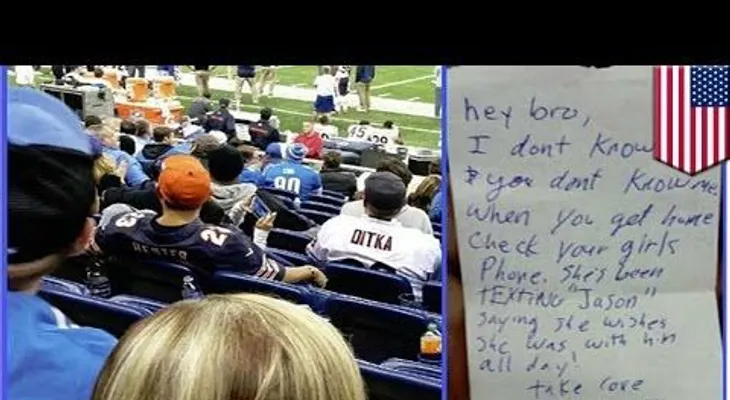 45
28
90
DITKA
23
HESTER
hey bro,
I dont know
you dont know me.
when you get home
check your girls
Phone. She's been
TEXTING "Jason"
saying she wishes
she was with him
all day!
take care